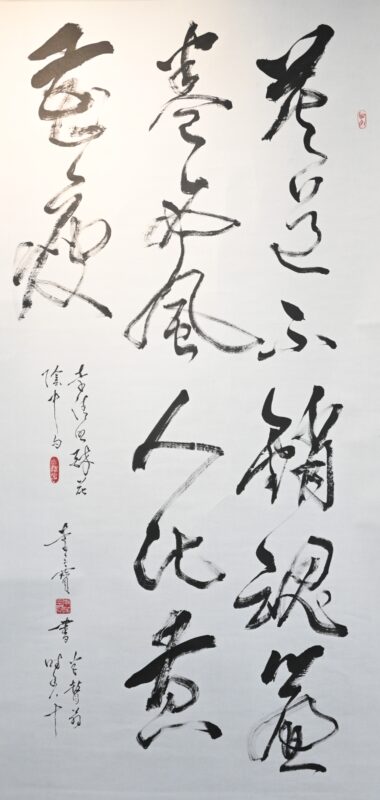 莫道不銷魂簾
卷西風人比黃
花瘦
李清照醉花
陰中句
書
時年八十